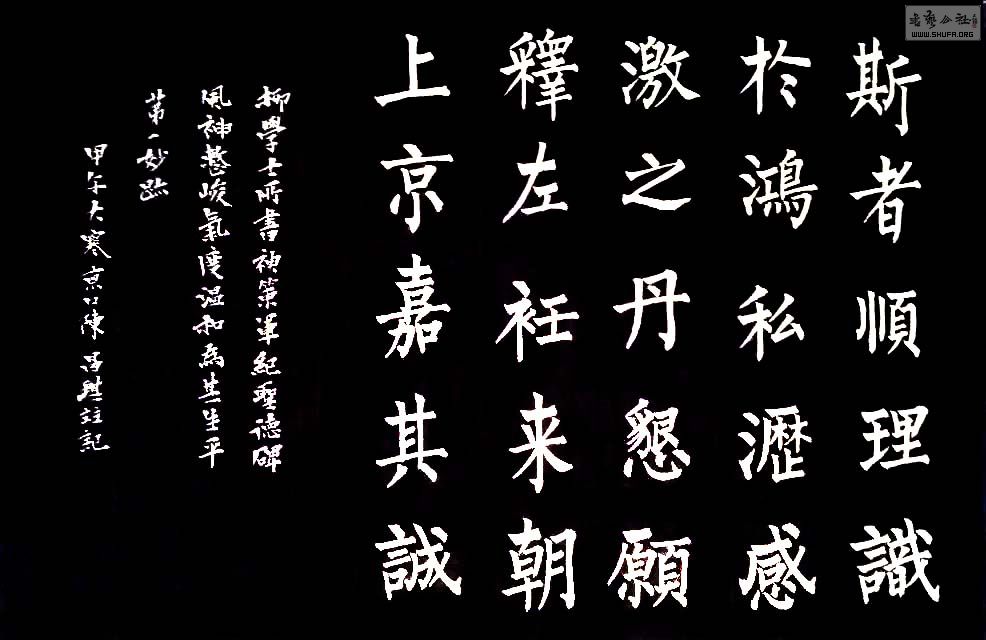 斯者順理識
於鴻私瀝感
激之丹懇願
釋左衽来朝
上京嘉其誠
柳學士所書神策軍紀聖德碑
風神整峻氣度温和為其生平
第一妙跡
甲午大寒京口陳昌 註記
書藝公社
WWW.SHUFA.ORG